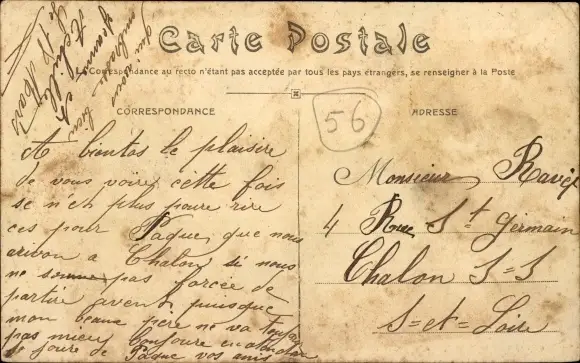 Carte Postale
La Correspondance au recto n'étant pas acceptée par tous les pays étrangers, se renseigner à la Poste
CORRESPONDANCE
ADRESSE
56
A bientos le plaisire
de vous voire, cette fois
se n'et plus poure rire
ces pour Paque, que nous
arivon a Chalon, si nous
ne somme pas forcée de
partire avent, puisque
mon beaux père ne va toujour
pas mieu
joure de Paque vos amis
qui vous
embrasse bien
Jeanne et
Achille
le 12 Mars
Monsieur Ravex
4 Rue St Germain
Chalon S=S
S=et=Loire